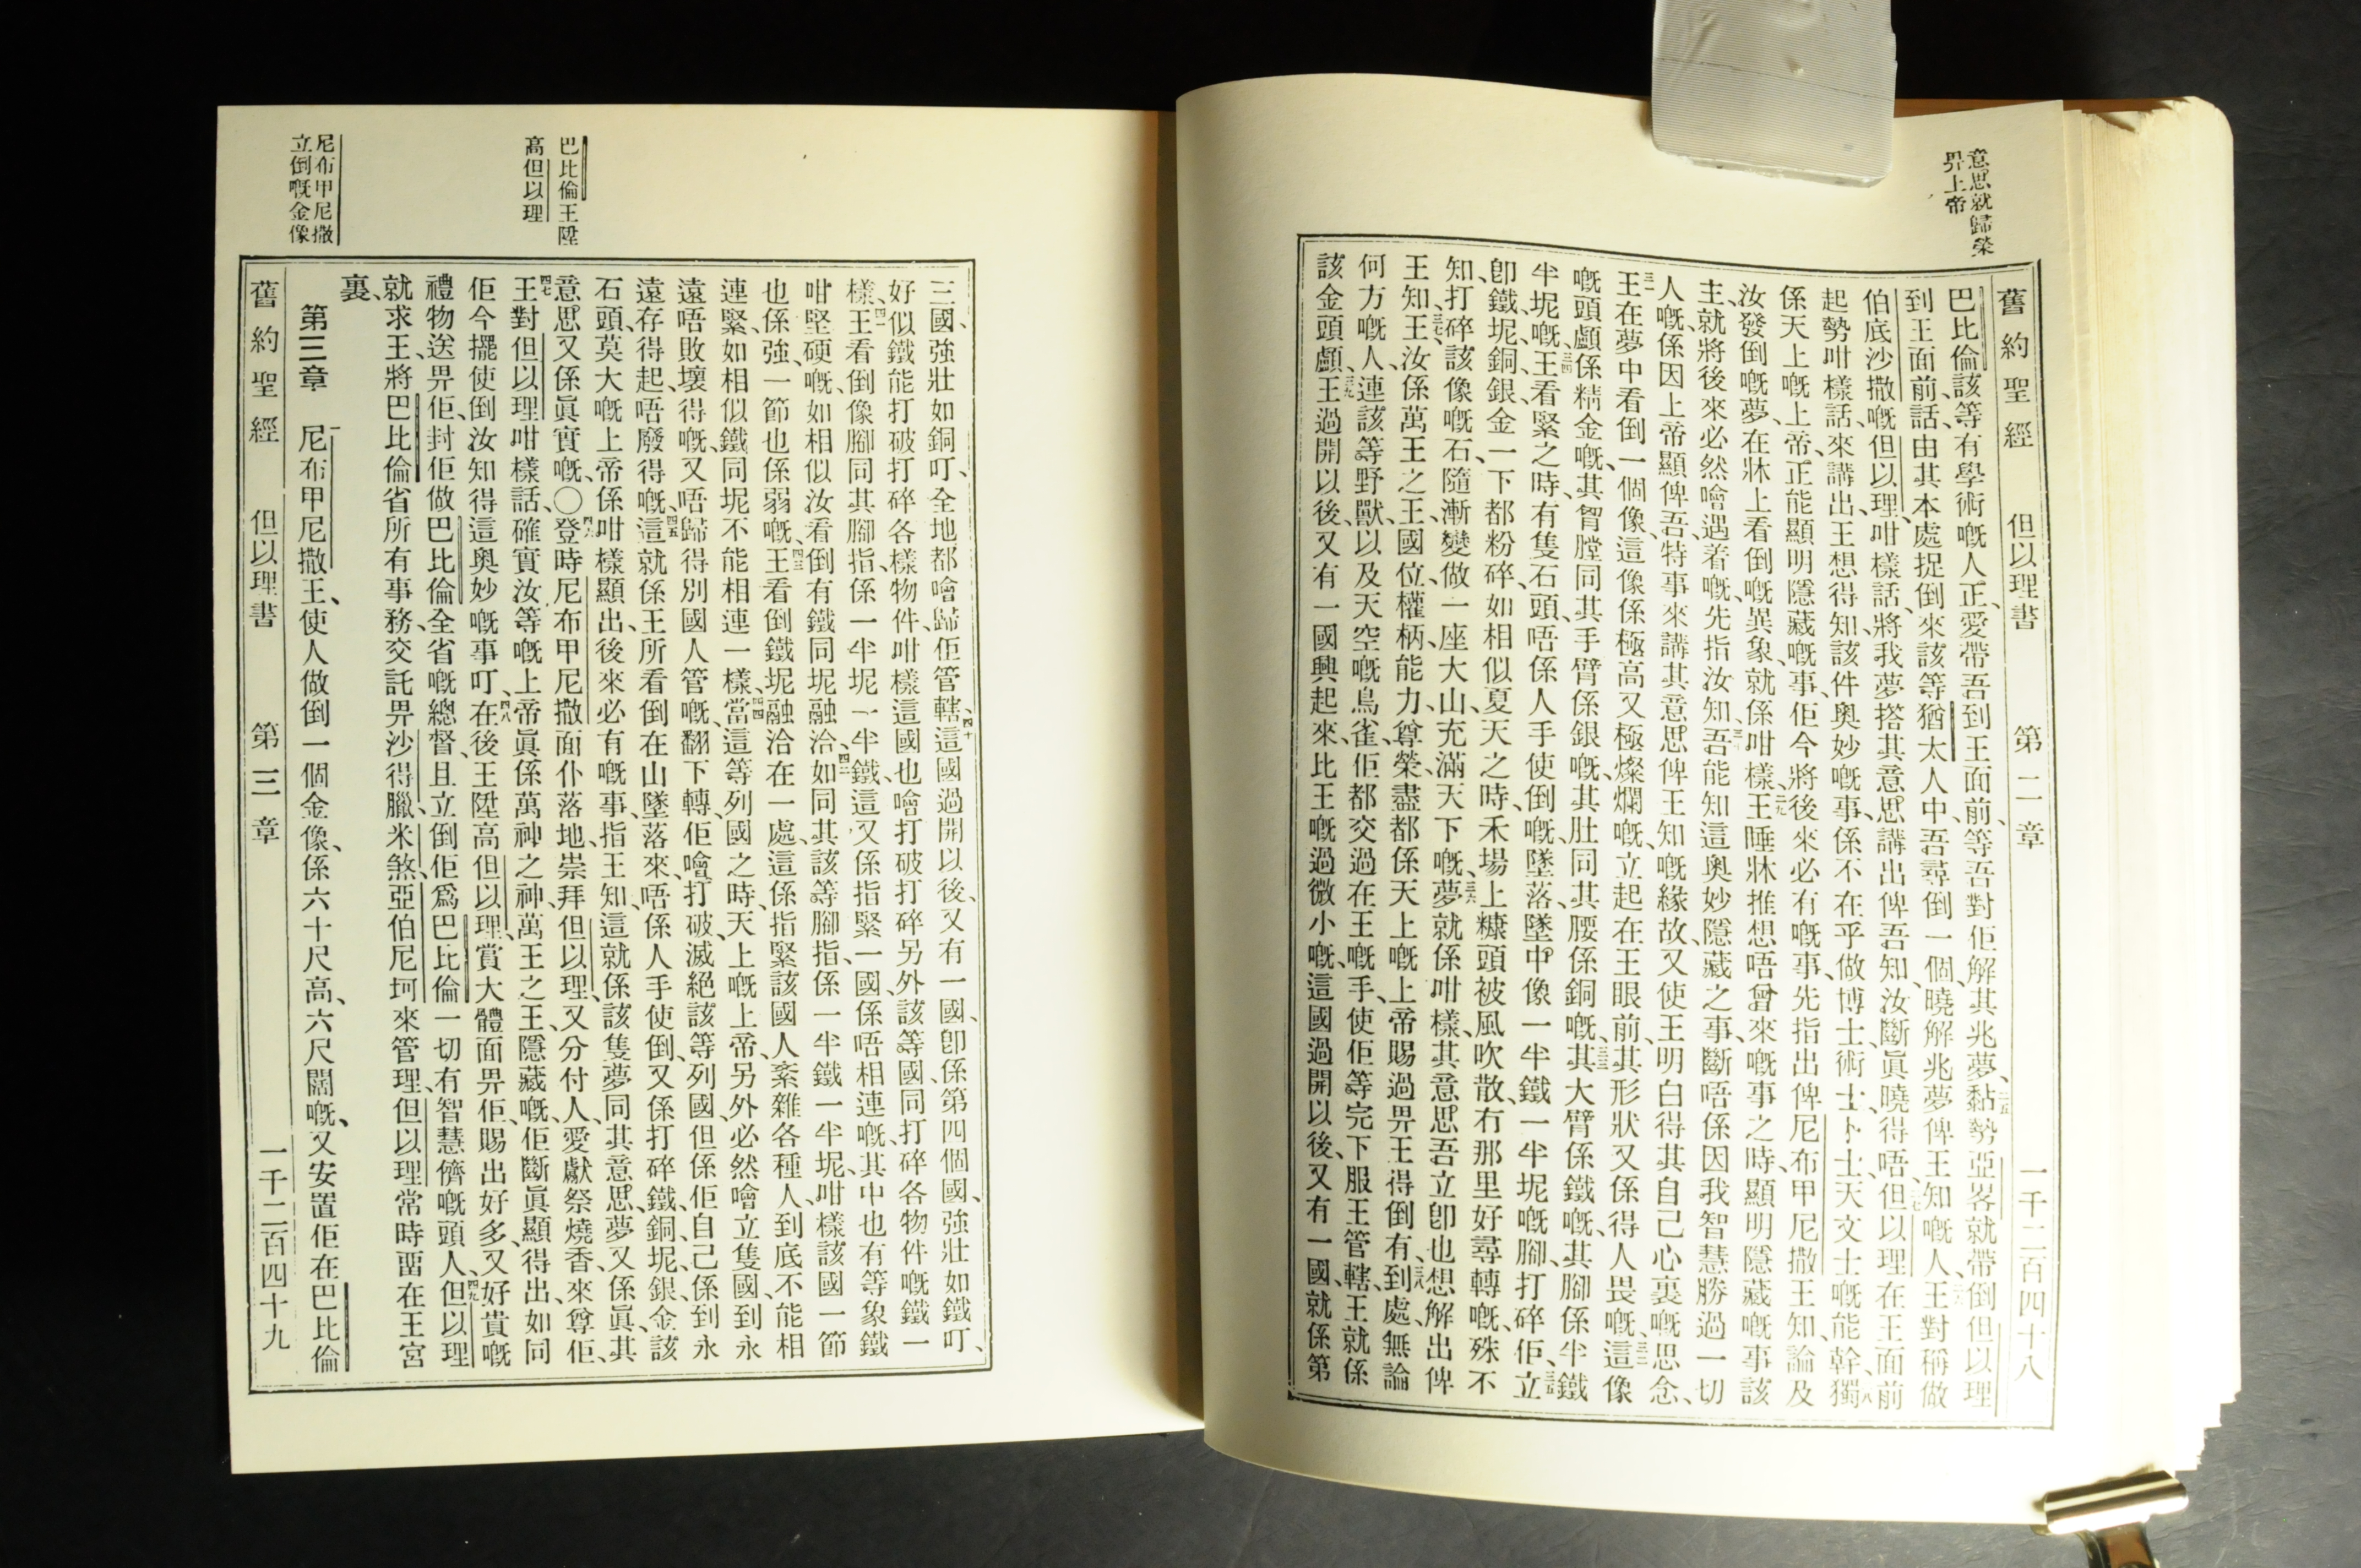 意思就歸榮
畀上帝
舊約聖經 但以理書 第二章 一千二百四十八
巴比倫該等有學術嘅人、正愛帶吾到王面前、等吾對佢解其兆夢、二五黏勢亞畧就帶倒但以理
到王面前、話、由其本處捉倒來該等猶太人中、吾尋倒一個、曉解兆夢俾王知嘅人、王對稱做
伯底沙撒嘅但以理、咁樣話、將我夢搭其意思講出俾吾知、汝斷眞曉得唔、二七但以理在王面前
起勢咁樣話、來講出、王想得知、該件奧妙嘅事、係不在乎做博士、術士、卜士、天文士嘅能幹、獨
係天上嘅上帝、正能顯明隱藏嘅事、佢今將後來必有嘅事、先指出俾尼布甲尼撒王知、論及
汝發倒嘅夢、在牀上看倒嘅異象、就係咁樣、二九王睡牀推想唔曾來嘅事之時、顯明隱藏嘅事該
主、就將後來必然噲遇着嘅、先指汝知、吾能知這奧妙隱藏之事、斷唔係因我智慧勝過一切
人嘅、係因上帝顯俾吾、特事來講其意思俾王知嘅緣故、又使王明白得其自己心裏嘅思念、
三一王在夢中看倒一個像、這像係極高又極燦爛嘅、立起在王眼前、其形狀又係得人畏嘅、三二這像
嘅頭顱係精金嘅、其胷膛同其手臂係銀嘅、其肚同其腰係銅嘅、三三其大臂係鐵嘅、其腳係半鐵
半坭嘅、三四王看緊之時、有隻石頭、唔係人手使倒嘅、墜落、墜中像一半鐵一半坭嘅腳、打碎佢、立
卽鐵、坭、銅、銀、金一下都粉碎、如相似夏天之時、禾場上糠頭被風吹散、冇那里好尋轉嘅、殊不
知、打碎該像嘅石、隨漸變做一座大山、充滿天下嘅、三六夢就係咁樣、其意思吾立卽也想解出俾
王知、三七王、汝係萬王之王、國位、權柄、能力、尊榮、盡都係天上嘅上帝賜過畀王得倒有、三八到處、無論
何方嘅人、連該等野獸、以及天空嘅鳥雀、佢都交過在王嘅手、使佢等完下服王管轄、王就係
該金頭顱、三九王過開以後、又有一國興起來、比王嘅過微小嘅、這國過開以後、又有一國、就係第
巴比倫王陞
高但以理
尼布甲尼撒
立倒嘅金像
三國、強壯如銅叮、全地都噲歸佢管轄、四十這國過開以後、又有一國、卽係第四個國、強壯如鐵叮、
好似鐵能打破打碎各樣物件、咁樣這國也噲打破打碎另外該等國、同打碎各物件嘅鐵一
樣、四一王看倒像腳同其腳指、係一半坭一半鐵、這又係指緊一國、係唔相連嘅、其中也有等象鐵
咁堅硬嘅、如相似汝看倒有鐵同坭融洽、四二如同其該等腳指、係一半鐵一半坭、咁樣該國一節
也係強、一節也係弱嘅、四三王看倒鐵坭融洽在一處、這係指緊該國人紊雜各種人、到底不能相
連緊、如相似鐵同坭不能相連一樣、四四當這等列國之時、天上嘅上帝、另外必然噲立隻國、到永
遠唔敗壞得嘅、又唔歸得別國人管嘅、翻下轉、佢噲打破滅絕該等列國、但係佢自己係到永
遠存得起、唔廢得嘅、四五這就係王所看倒在山墜落來、唔係人手使倒、又係打碎鐵、銅、坭、銀、金、該
石頭、莫大嘅上帝係咁樣顯出後來必有嘅事、指王知、這就係該隻夢同其意思、夢又係眞、其
意思又係眞實嘅、〇四六登時尼布甲尼撒面仆落地、崇拜但以理、又分付人、愛獻祭燒香、來尊佢、
四七王對但以理咁樣話、確實汝等嘅上帝眞係萬神之神、萬王之王、隱藏嘅、佢斷眞顯得出、如同
佢今擺使倒汝知得這奧妙嘅事叮、四八在後、王陞高但以理、賞大體面畀佢、賜出好多、又好貴嘅
禮物送畀佢、封佢做巴比倫全省嘅總督、且立倒佢爲巴比倫一切有智慧儕嘅頭人、四九但以理
就求王、將巴比倫省所有事務、交託畀沙得臘、米煞、亞伯尼坷來管理、但以理常時畱在王宮
裏、
第三章 一尼布甲尼撒王、使人做倒一個金像、係六十尺高、六尺闊嘅、又安置佢在巴比倫
舊約聖經 但以理書 第三章 一千二百四十九